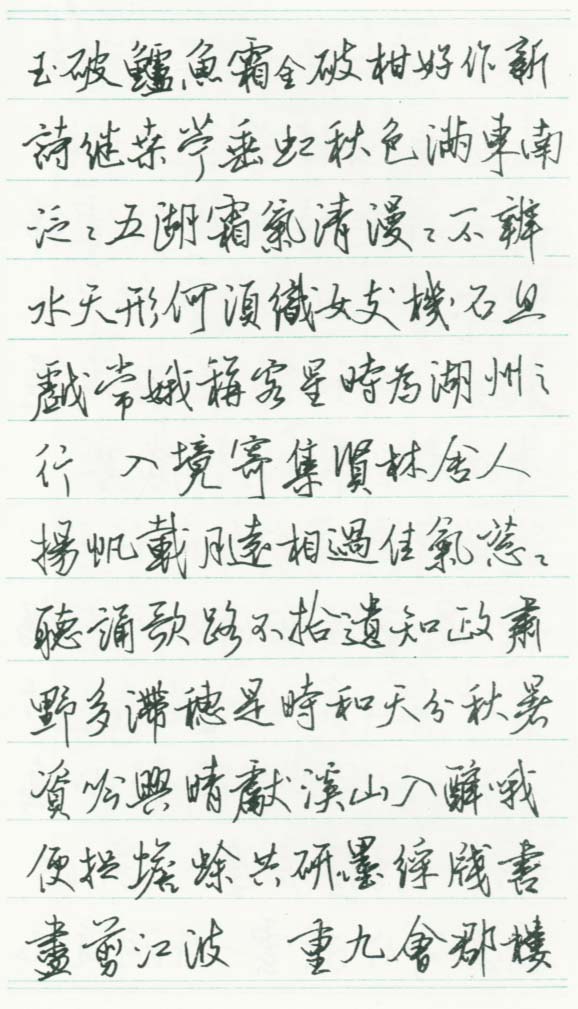 玉破鱸魚霜金破柑好作新
詩继桑苧垂虹秋色满東南
泛〻五湖霜氣清漫〻不辨
水天形何須織女支機石且
戲常娥稱客星時为湖州之
行 入境寄集賢林舍人
揚帆載月遠相過佳氣葱〻
聽誦歌路不拾遺知政肅
野多滯穗是時和天分秋暑
資吟興晴獻溪山入醉哦
便捉蟾蜍共研墨綵牋書
盡剪江波 重九會郡樓